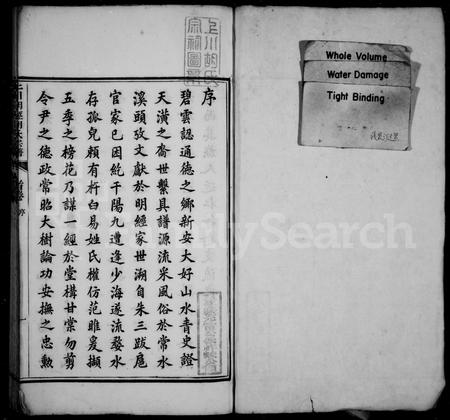 Whole Volume
Water Damage
Tight Binding
上川胡氏
宗祠圖記
序
碧雲認通德之鄉新安大好山水青史證
天潢之裔世繫具譜源流采風俗於常水
溪頭攷文獻於明經家世溯自朱三跋扈
官家已困乾千陽九遭逢少海遂流婺水
存孤兒賴有杵臼易姓氏權仿范雎爰擷
五季之榜花乃謀一經於堂構甘棠勿剪
令尹之德政常昭大樹論功安撫之忠勲
FamilySearch